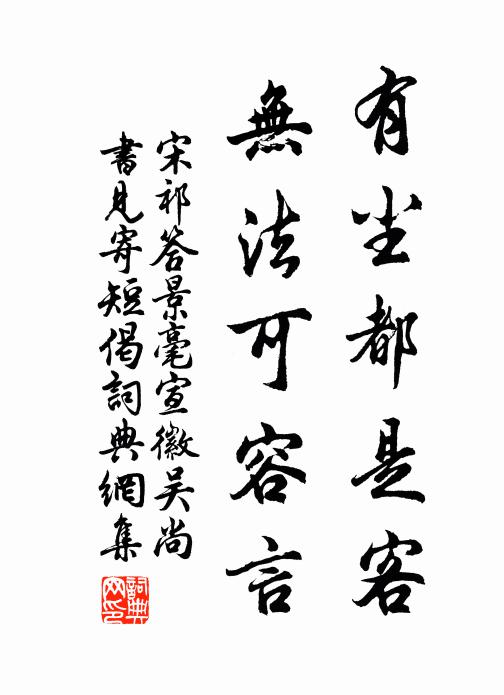 有尘都是客
無法可容言
宋祁答景毫宣徽吴尚
書見寄短偈詞典網集
詞典網印